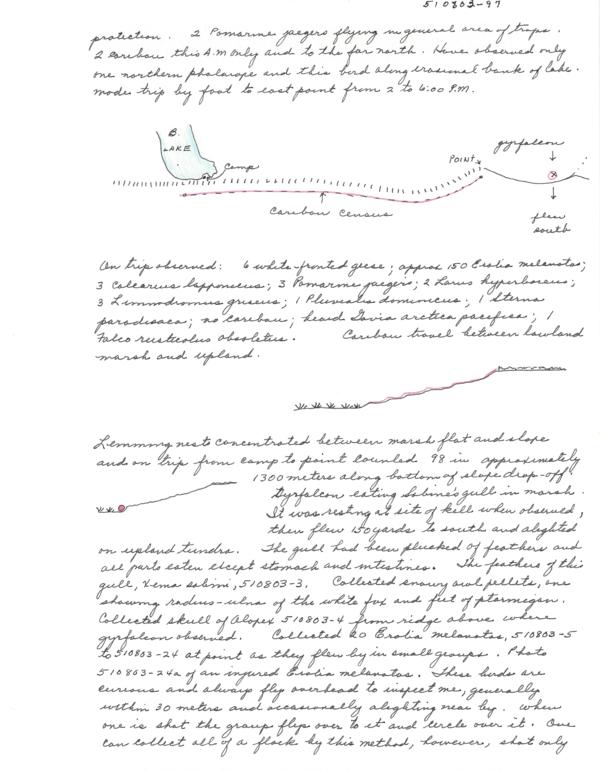 510803-97
protection. 2 Pomarine jaegers flying in general area of traps.
2 caribou this A.M. only and to the far north. Have observed only
one northern phalarope and this bird along erosional bank of lake.
made trip by foot to east point from 2 to 6:00 P.M.
B.
LAKE
Camp
POINT
gyrfalcon
Caribou Census
flew
south
On trip observed: 6 white-fronted geese; approx 150 Erolia melanotos;
3 Calcarius lapponicus; 3 Pomarine jaegers; 2 Larus hyperboreus;
3 Limnodromus griseus; 1 Pluvialis dominicus; 1 Sterna
paradisaea; no caribou; heard Gavia arctica pacifica; 1
Falco rusticolus obsoletus. Caribou travel between lowland
marsh and upland.
Lemming nests concentrated between marsh flat and slope
and on trip from camp to point counted 98 in approximately
1300 meters along bottom of slope drop-off.
Gyrfalcon eating Sabine's gull in marsh.
It was resting at site of kill when observed,
then flew 150 yards to south and alighted
on upland tundra. The gull had been plucked of feathers and
all parts eaten except stomach and intestines. The feathers of this
gull, Xema sabini, 510803-3. Collected snowy owl pellets, one
showing radius-ulna of the white fox and feet of ptarmigan.
Collected skull of Alopex 510803-4 from ridge above where
gyrfalcon observed. Collected 20 Erolia melanotos, 510803-5
to 510803-24 at point as they flew by in small groups. Photo
510803-24a of an injured Erolia melanotos. These birds are
curious and always fly overhead to inspect me, generally
within 30 meters and occasionally alighting near by. When
one is shot the group flips over to it and circle over it. One
can collect all of a flock by this method, however, shot only